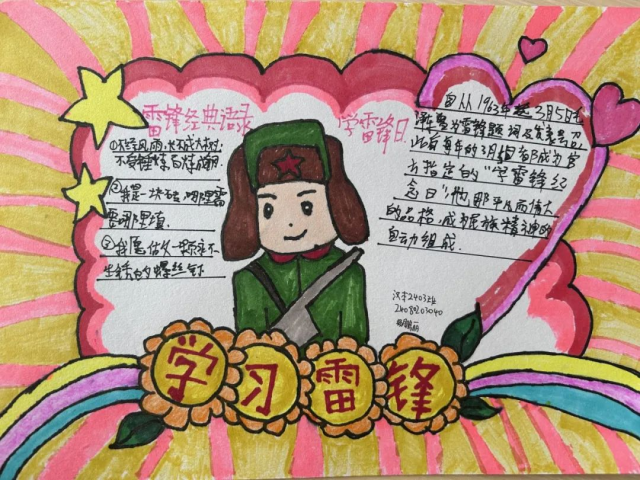 雷锋经典语录
①不经风雨,长不成大树;
不受百炼,
②我是一块石,哪里需
要哪里填.
③我愿做一颗永不
生锈的螺丝钉
学雷锋日
自从1963年 3月5日
雷锋题词发表号召
此后每年的3月 都成为官
方指定的“学雷锋纪
念日”他那平凡而伟大
的品格,成为民族精神的
自动组成.
汉 2403班
2408920 3040
学习雷锋